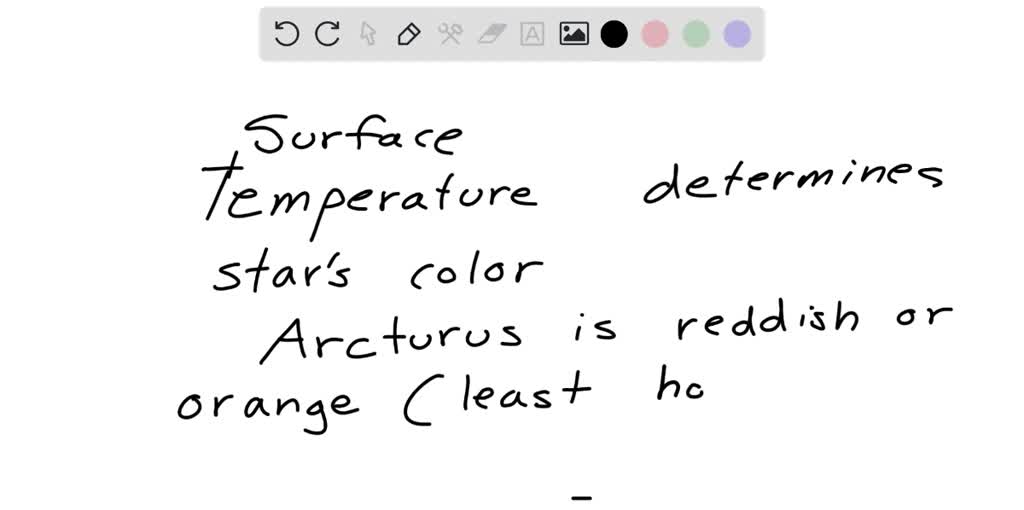 Surface
Temperature determines
star's color
Arcturus is reddish or
orange (least ho